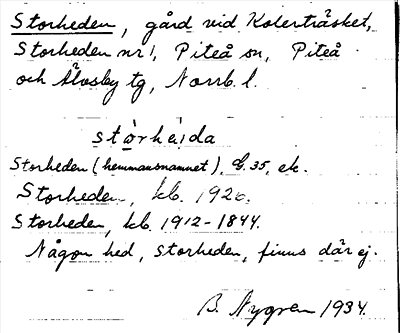 Storheden, gård vid Kolerträsket,
Storheden nr 1, Piteå sn, Piteå
och Älvsby tg, Norrb. l.
stòrhéi̯da
Storheden (hemmansnamnet), G. 35, ek.
Storheden, kb. 1926.
Storheden, kb. 1912-1844.
Någon hed, Storheden, finns där ej.
B. Nygren 1934.